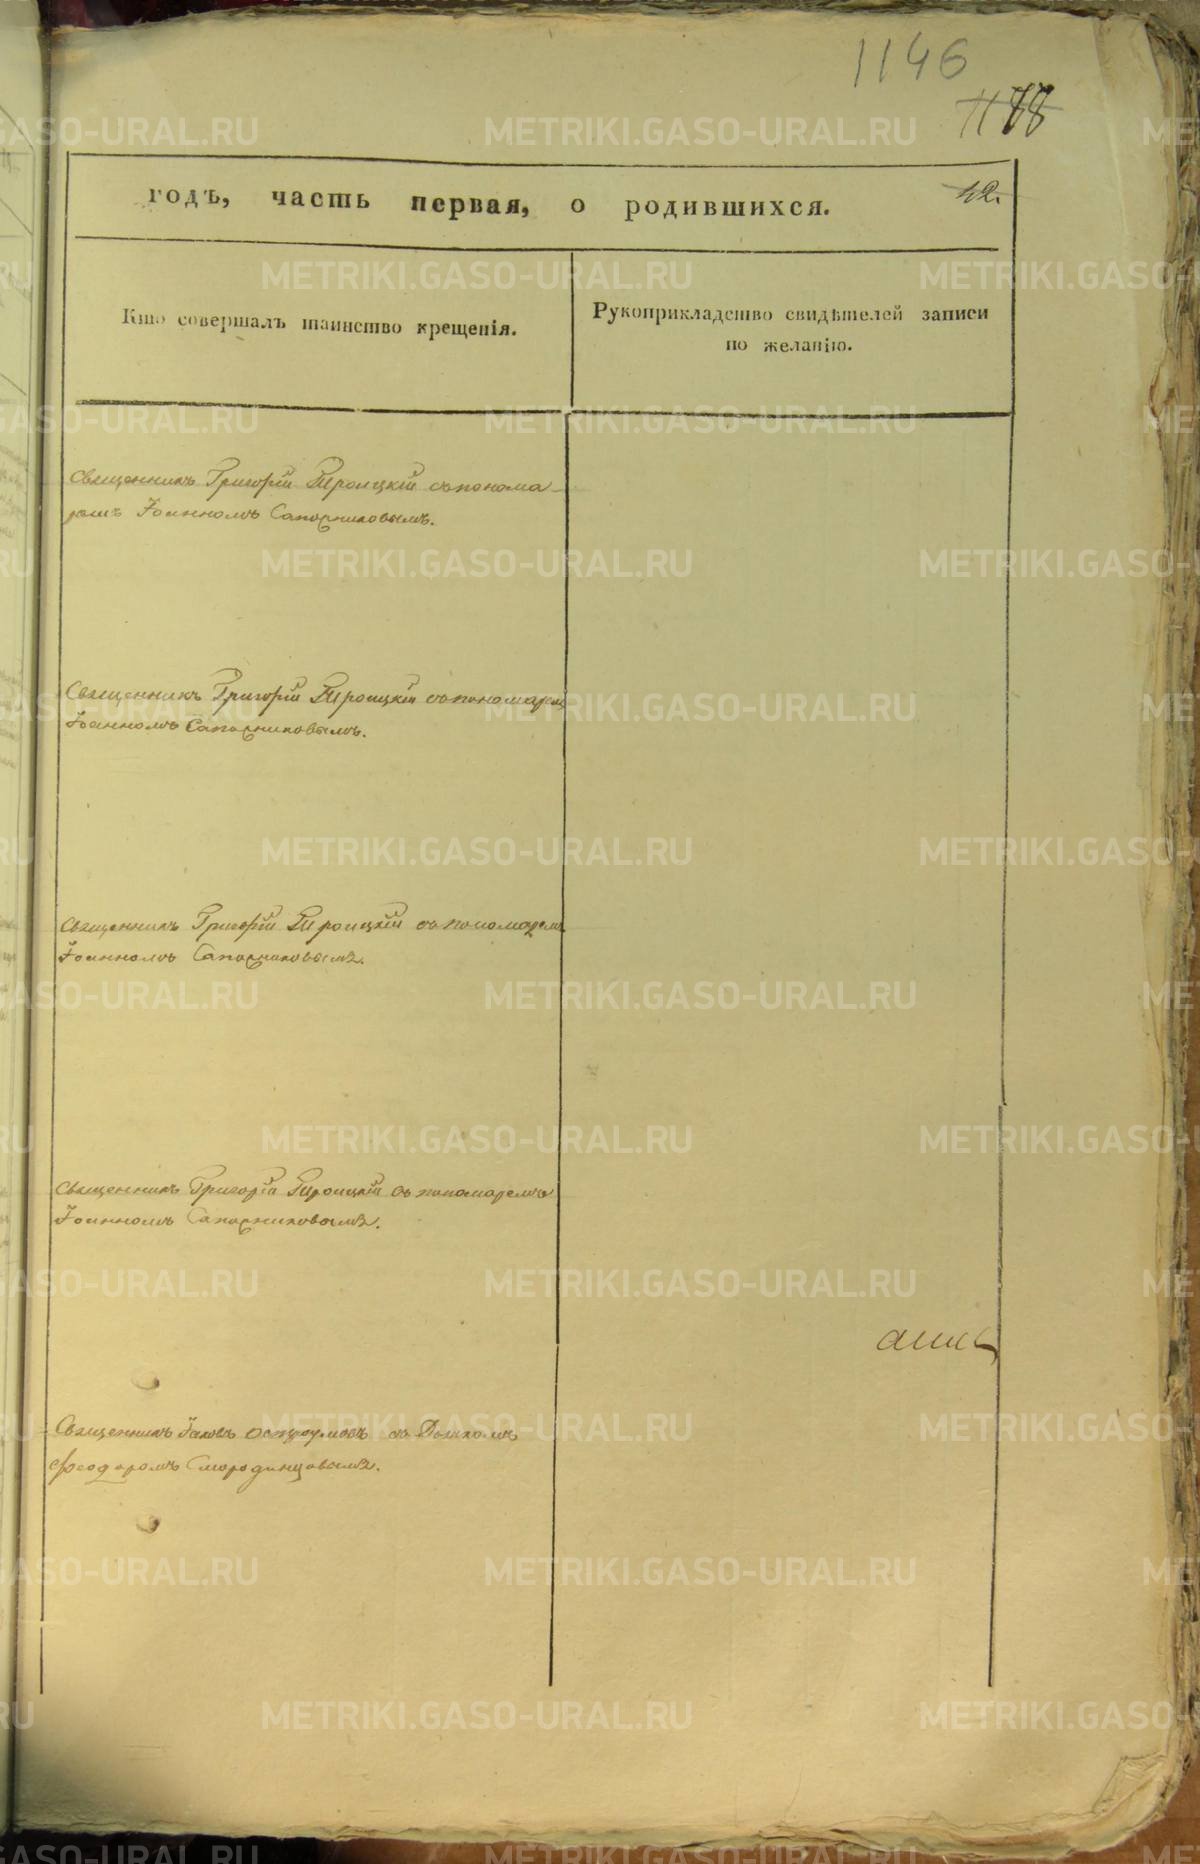 1146
1188
42.
годъ, часть первая, о родившихся.
Кто совершалъ таинство крещенія.
Рукоприкладство свидѣтелей записи
по желанію.
Священникъ Григорій Троицкій съ понома-
ремъ Іоанномъ Сапожниковымъ.
Священникъ Григорій Троицкій съ пономарем
Іоанномъ Сапожниковымъ.
Священникъ Григорій Троицкій съ пономарем
Іоанномъ Сапожниковымъ.
Священникъ Григорій Троицкій съ пономаремъ
Іоанномъ Сапожниковымъ.
Священникъ Іаковъ Остроумовъ съ Дьякомъ
Феодоромъ Смородинцовымъ.
METRIKI.GASO-URAL.RU